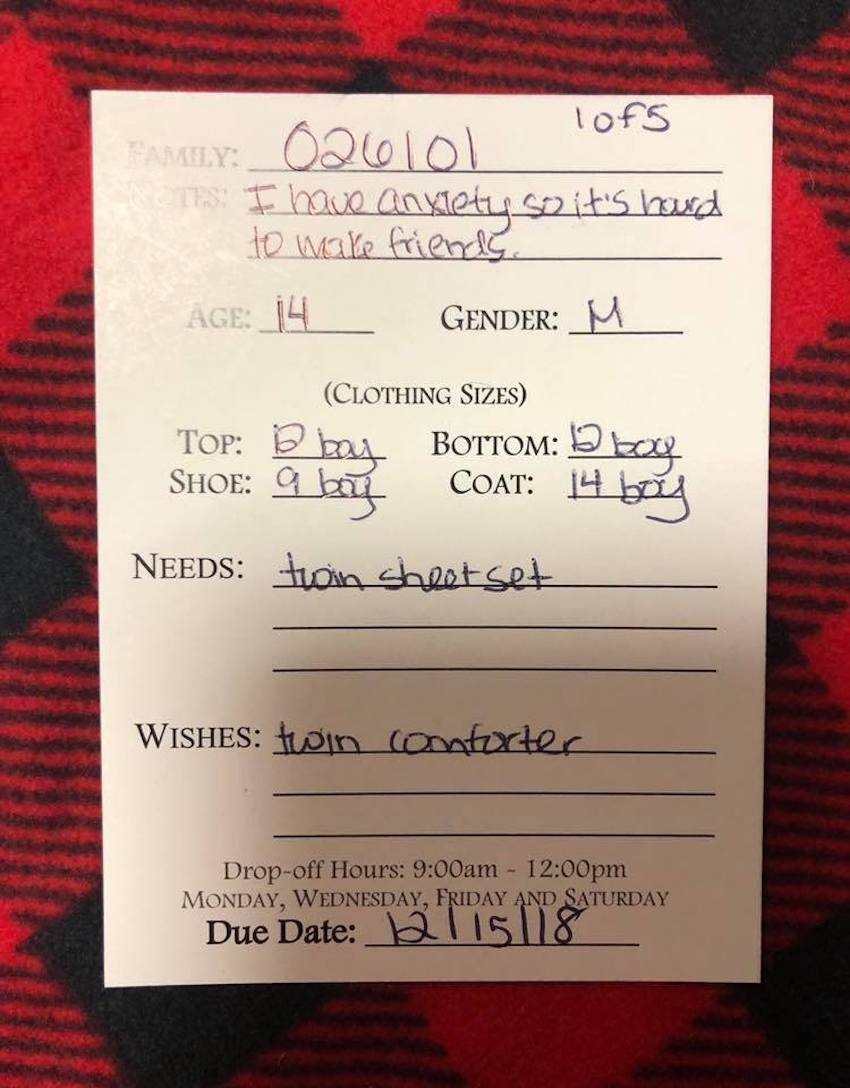 1 of 5
FAMILY: 026101
NOTES: I have anxiety so it's hard
to make friends.
AGE: 14 GENDER: M
(CLOTHING SIZES)
TOP: 12 boy BOTTOM: 12 boy
SHOE: 9 boy COAT: 14 boy
NEEDS: twin sheet set
WISHES: twin comforter
Drop-off Hours: 9:00am - 12:00pm
MONDAY, WEDNESDAY, FRIDAY AND SATURDAY
Due Date: 12/15/18